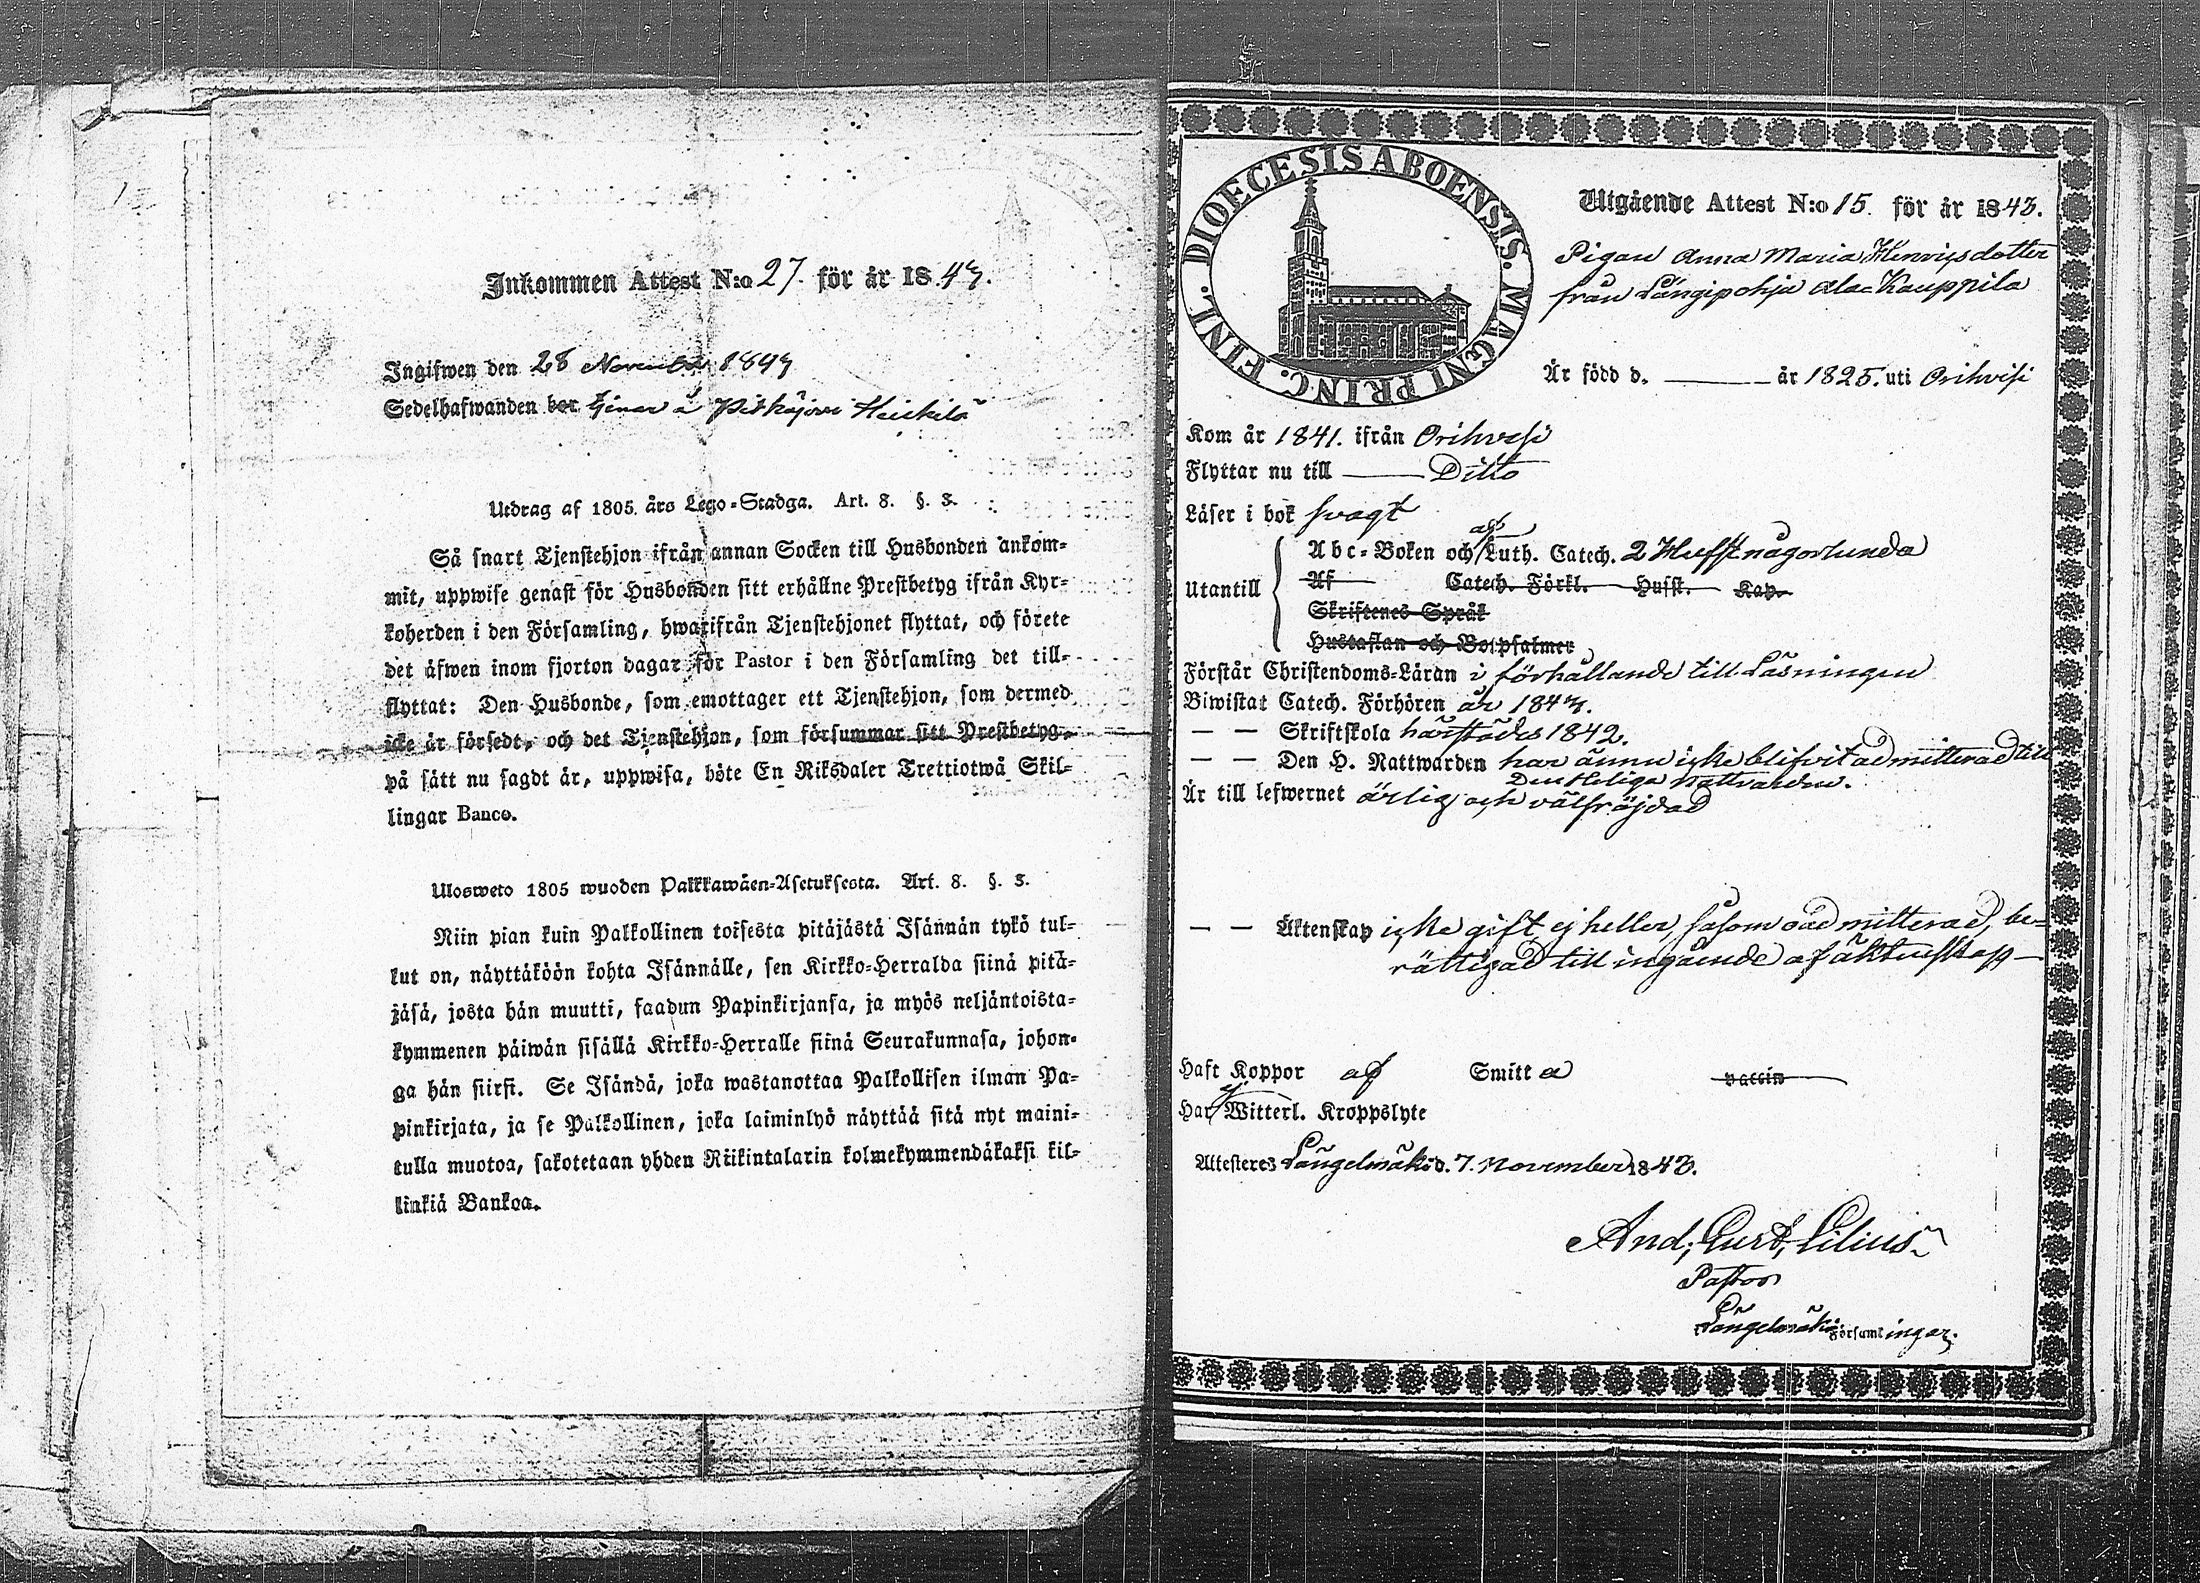 Inkommen Attest N:o 27. för år 1843.
Ingifwen den 28 November 1843
Sedelhafwanden bor å Pitkäjärvi Heickilä
Utdrag af 1805 års Lego-Stadga. Art. 8. §. 3.
Så snart Tjenstehjon ifrån annan Socken till Husbonden ankom-
mit, uppwise genast för Husbonden sitt erhållne Prestbetyg ifrån Kyr-
koherden i den Församling, hwarifrån Tjenstehjonet flyttat, och förete
det äfwen inom fjorton dagar för Pastor i den Församling det till-
flyttat: Den Husbonde, som emottager ett Tjenstehjon, som dermed
icke är försedt, och det Tjenstehjon, som försummar sitt Prestbetyg,
på sätt nu sagdt är, uppwisa, böte En Riksdaler Trettiotwå Skil-
lingar Banco.
Ulosweto 1805 wuoden Palkkawäen-Asetuksesta. Art. 8. §. 3.
Niin pian kuin Palkollinen toisesta pitäjästä Isännän tykö tul-
lut on, näyttäköön kohta Isännälle, sen Kirkko-Herralda siinä pitä-
jäsä, josta hän muutti, saadun Papinkirjansa, ja myös neljäntoista-
kymmenen päiwän sisällä Kirkko-Herralle siinä Seurakunnasa, johon-
ga hän siirsi. Se Isändä, joka wastanottaa Palkollisen ilman Pa-
pinkirjata, ja se Palkollinen, joka laiminlyö näyttää sitä nyt maini-
tulla muotoa, sakotetaan yhden Riikintalarin kolmekymmendäkaksi kil-
linkiä Bankoa.
DIOECESIS ABOENSIS. MAGNI PRINC. FINL.
Utgående Attest N:o 15. för år 1843.
Pigan Anna Maria Henricsdotter
från Längipohja Ala-Kauppila
Är född d. ——— år 1825. uti Orihvesi
Kom år 1841. ifrån Orihvesi
Flyttar nu till ——— Ditto
Läser i bok svagt
Utantill
Abc-Boken och af Luth. Catech. 2 Hufst någorlunda
Af Catech. Förkl. Hufst. Kap.
Skriftenes Språk
Hustaflan och Botpsalmer
Förstår Christendoms-Läran i förhållande till Läsningen
Biwistat Catech. Förhören år 1843.
— — Skriftskola härstädes 1842.
— — Den H. Nattwarden har ännu icke blifvit admitterad till
Den Heliga Nattvarden.
Är till lefwernet ärlig och välfräjdad
— — Äktenskap icke gift, ej heller, såsom oadmitterad, be-
rättigad till ingående af äktenskap —
Haft Koppor af Smitta vaccin
Har ej Witterl. Kroppslyte
Attesteres Längelmäki d. 7. November 1843.
And, Gust, Lilius
Pastor
Längelmäki Församlingar.